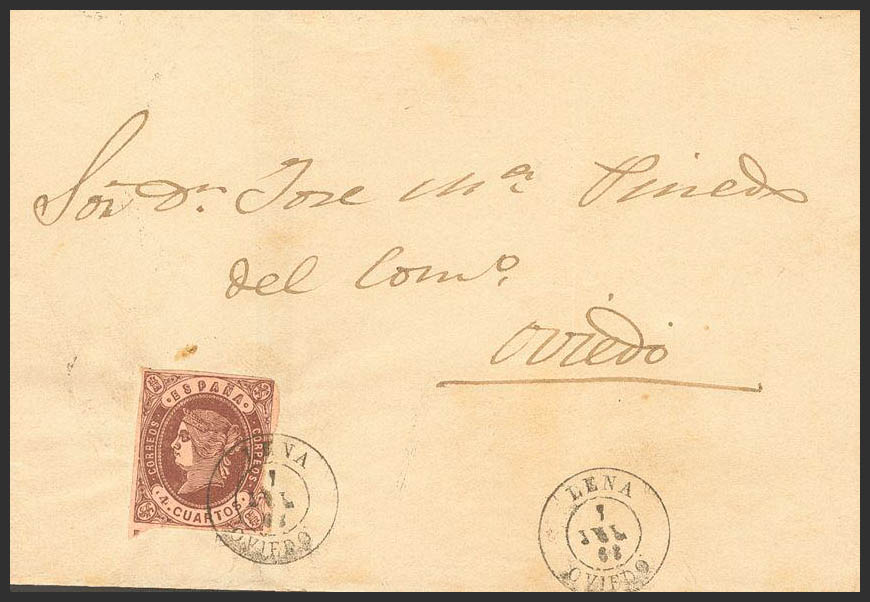 Sōr Dn Jose Mª Pinedo
del Comº
Oviedo
ESPAÑA
CORREOS CORREOS
4 CUARTOS
LENA
JUL
OVIEDO
LENA
7
JUL
63
OVIEDO